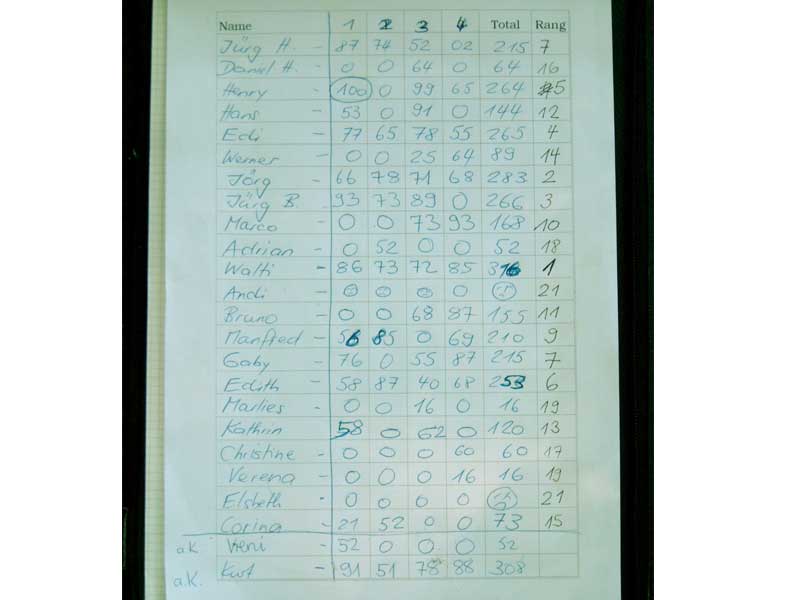 Name 1 2 3 4 Total Rang
Jürg H. - 87 74 52 02 215 7
Daniel H. - 0 0 64 0 64 16
Henry - 100 0 99 65 264 5
Hans - 53 0 91 0 144 12
Edi - 77 65 78 55 265 4
Werner - 0 0 25 64 89 14
Jörg - 66 78 71 68 283 2
Jürg B. - 93 73 89 0 266 3
Marco - 0 0 73 93 168 10
Adrian - 0 52 0 0 52 18
Walti - 86 73 72 85 316 1
Andi - 0 0 0 0 21
Bruno - 0 0 68 87 155 11
Manfred - 56 85 0 69 210 9
Gaby - 76 0 55 87 215 7
Edith - 58 87 40 68 253 6
Marlies - 0 0 16 0 16 19
Kathrin - 58 0 62 0 120 13
Christine - 0 0 0 60 60 17
Verena - 0 0 0 16 16 19
Elsbeth - 0 0 0 0 21
Corina - 21 52 0 0 73 15
a.K. Vreni - 52 0 0 0 52
a.K. Kurt - 91 51 78 88 308